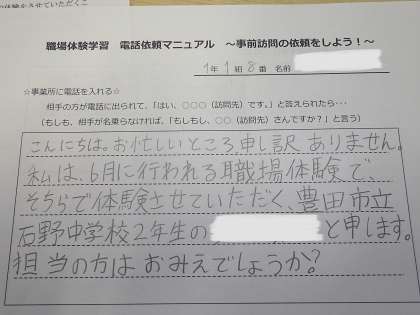 職場体験学習 電話依頼マニュアル ～事前訪問の依頼をしよう！～
1年 1組 8番 名前
☆事業所に電話を入れる☆
相手の方が電話に出られて、「はい、○○○（訪問先）です。」と答えられたら…
（もしも、相手が名乗らなければ、「もしもし、○○（訪問先）さんですか？」と言う）
こんにちは。お忙しいところ、申し訳ありません。
私は、6月に行われる職場体験で、
そちらで体験させていただく、豊田市立
石野中学校2年生の と申します。
担当の方はおみえでしょうか？